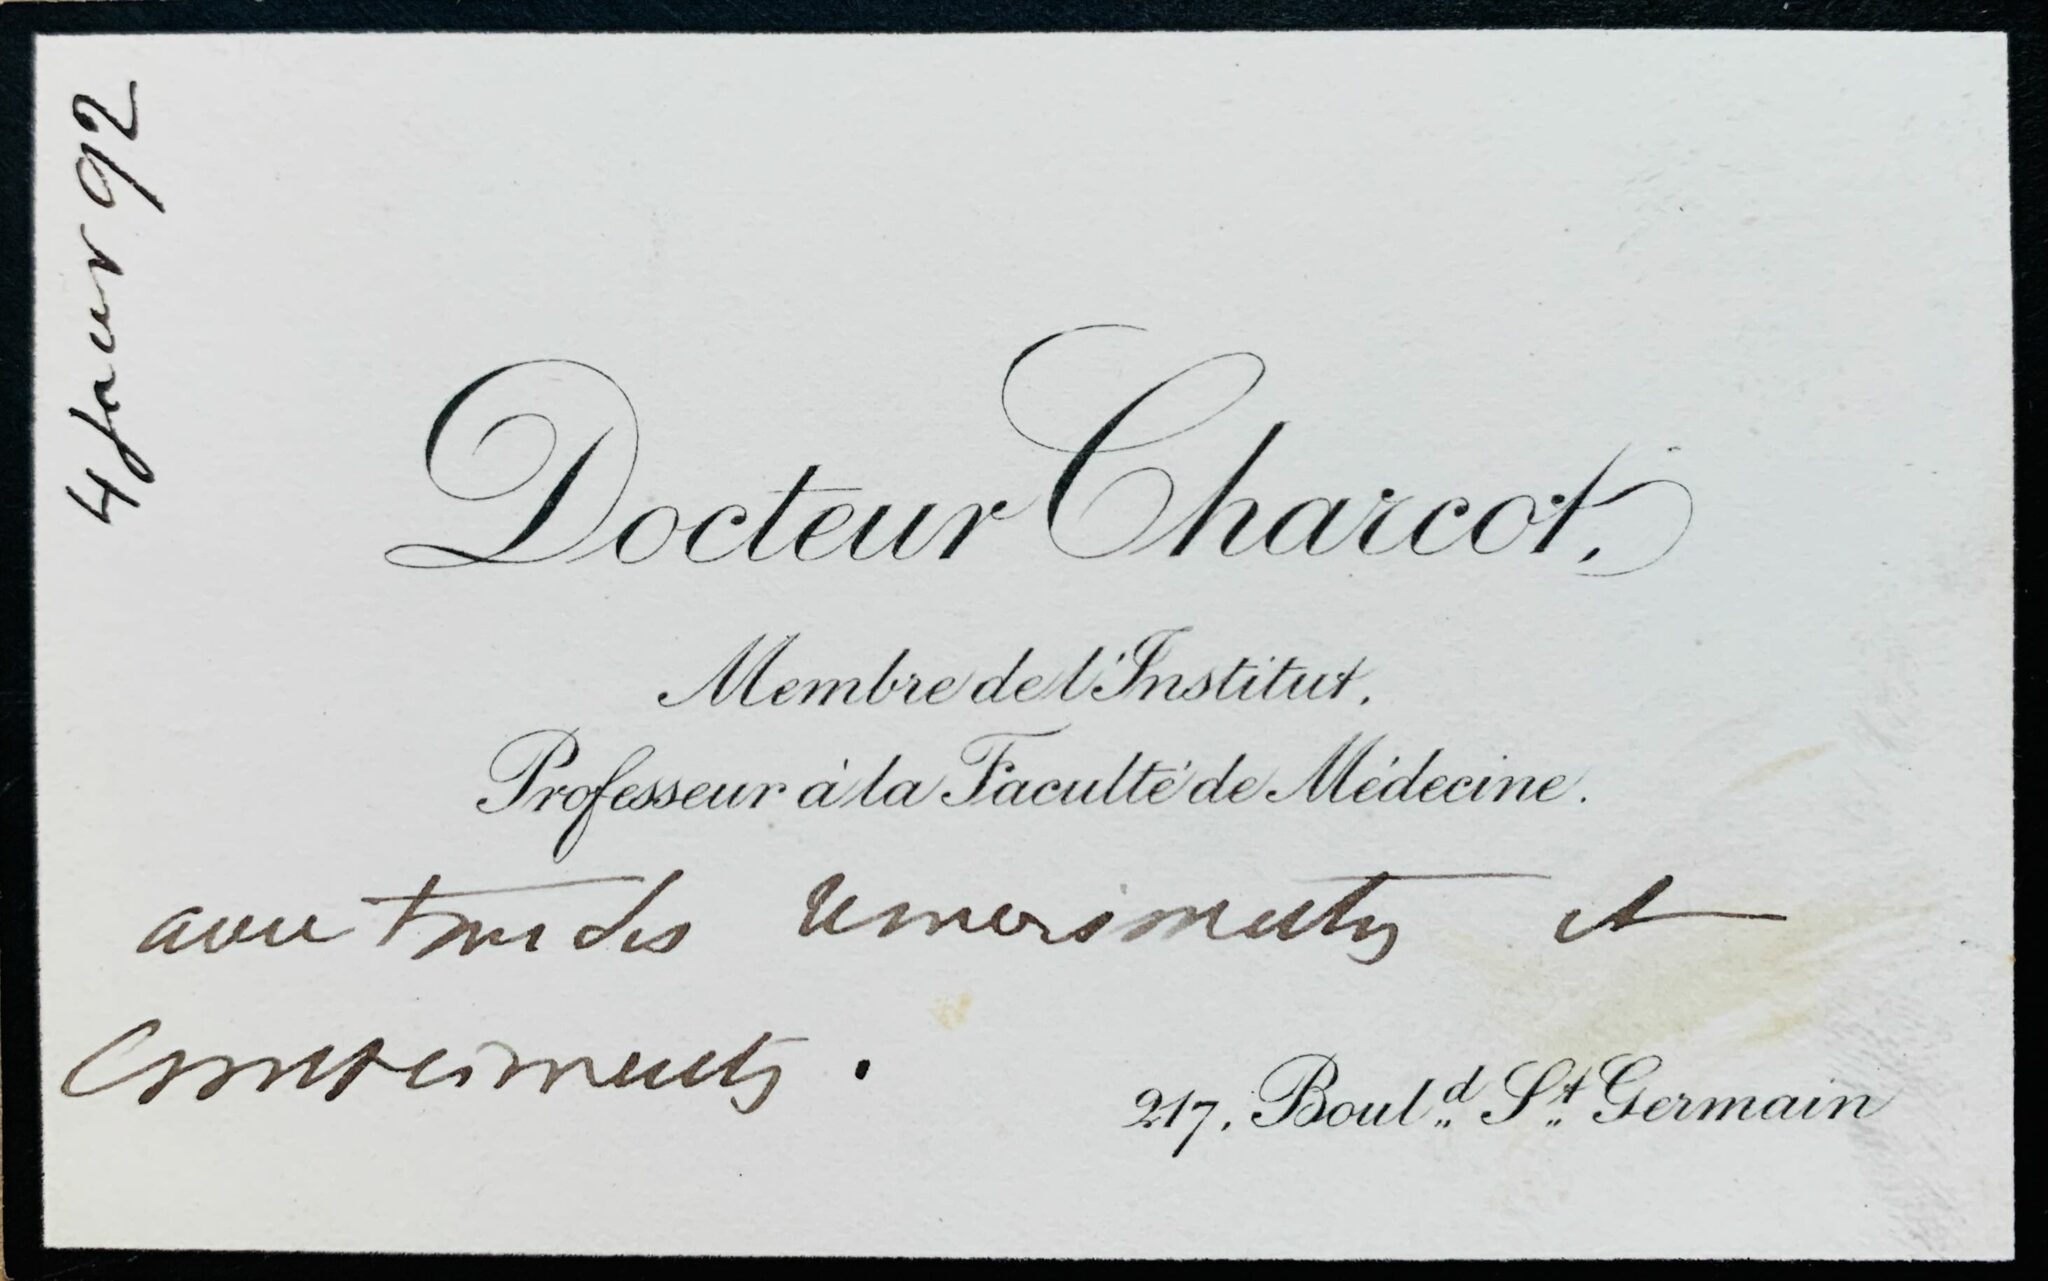 4 Janvr 92
Docteur Charcot,
Membre de l'Institut,
Professeur à la Faculté de Médecine.
avec tous ses remerciments et
compliments.
217, Boul.d St. Germain